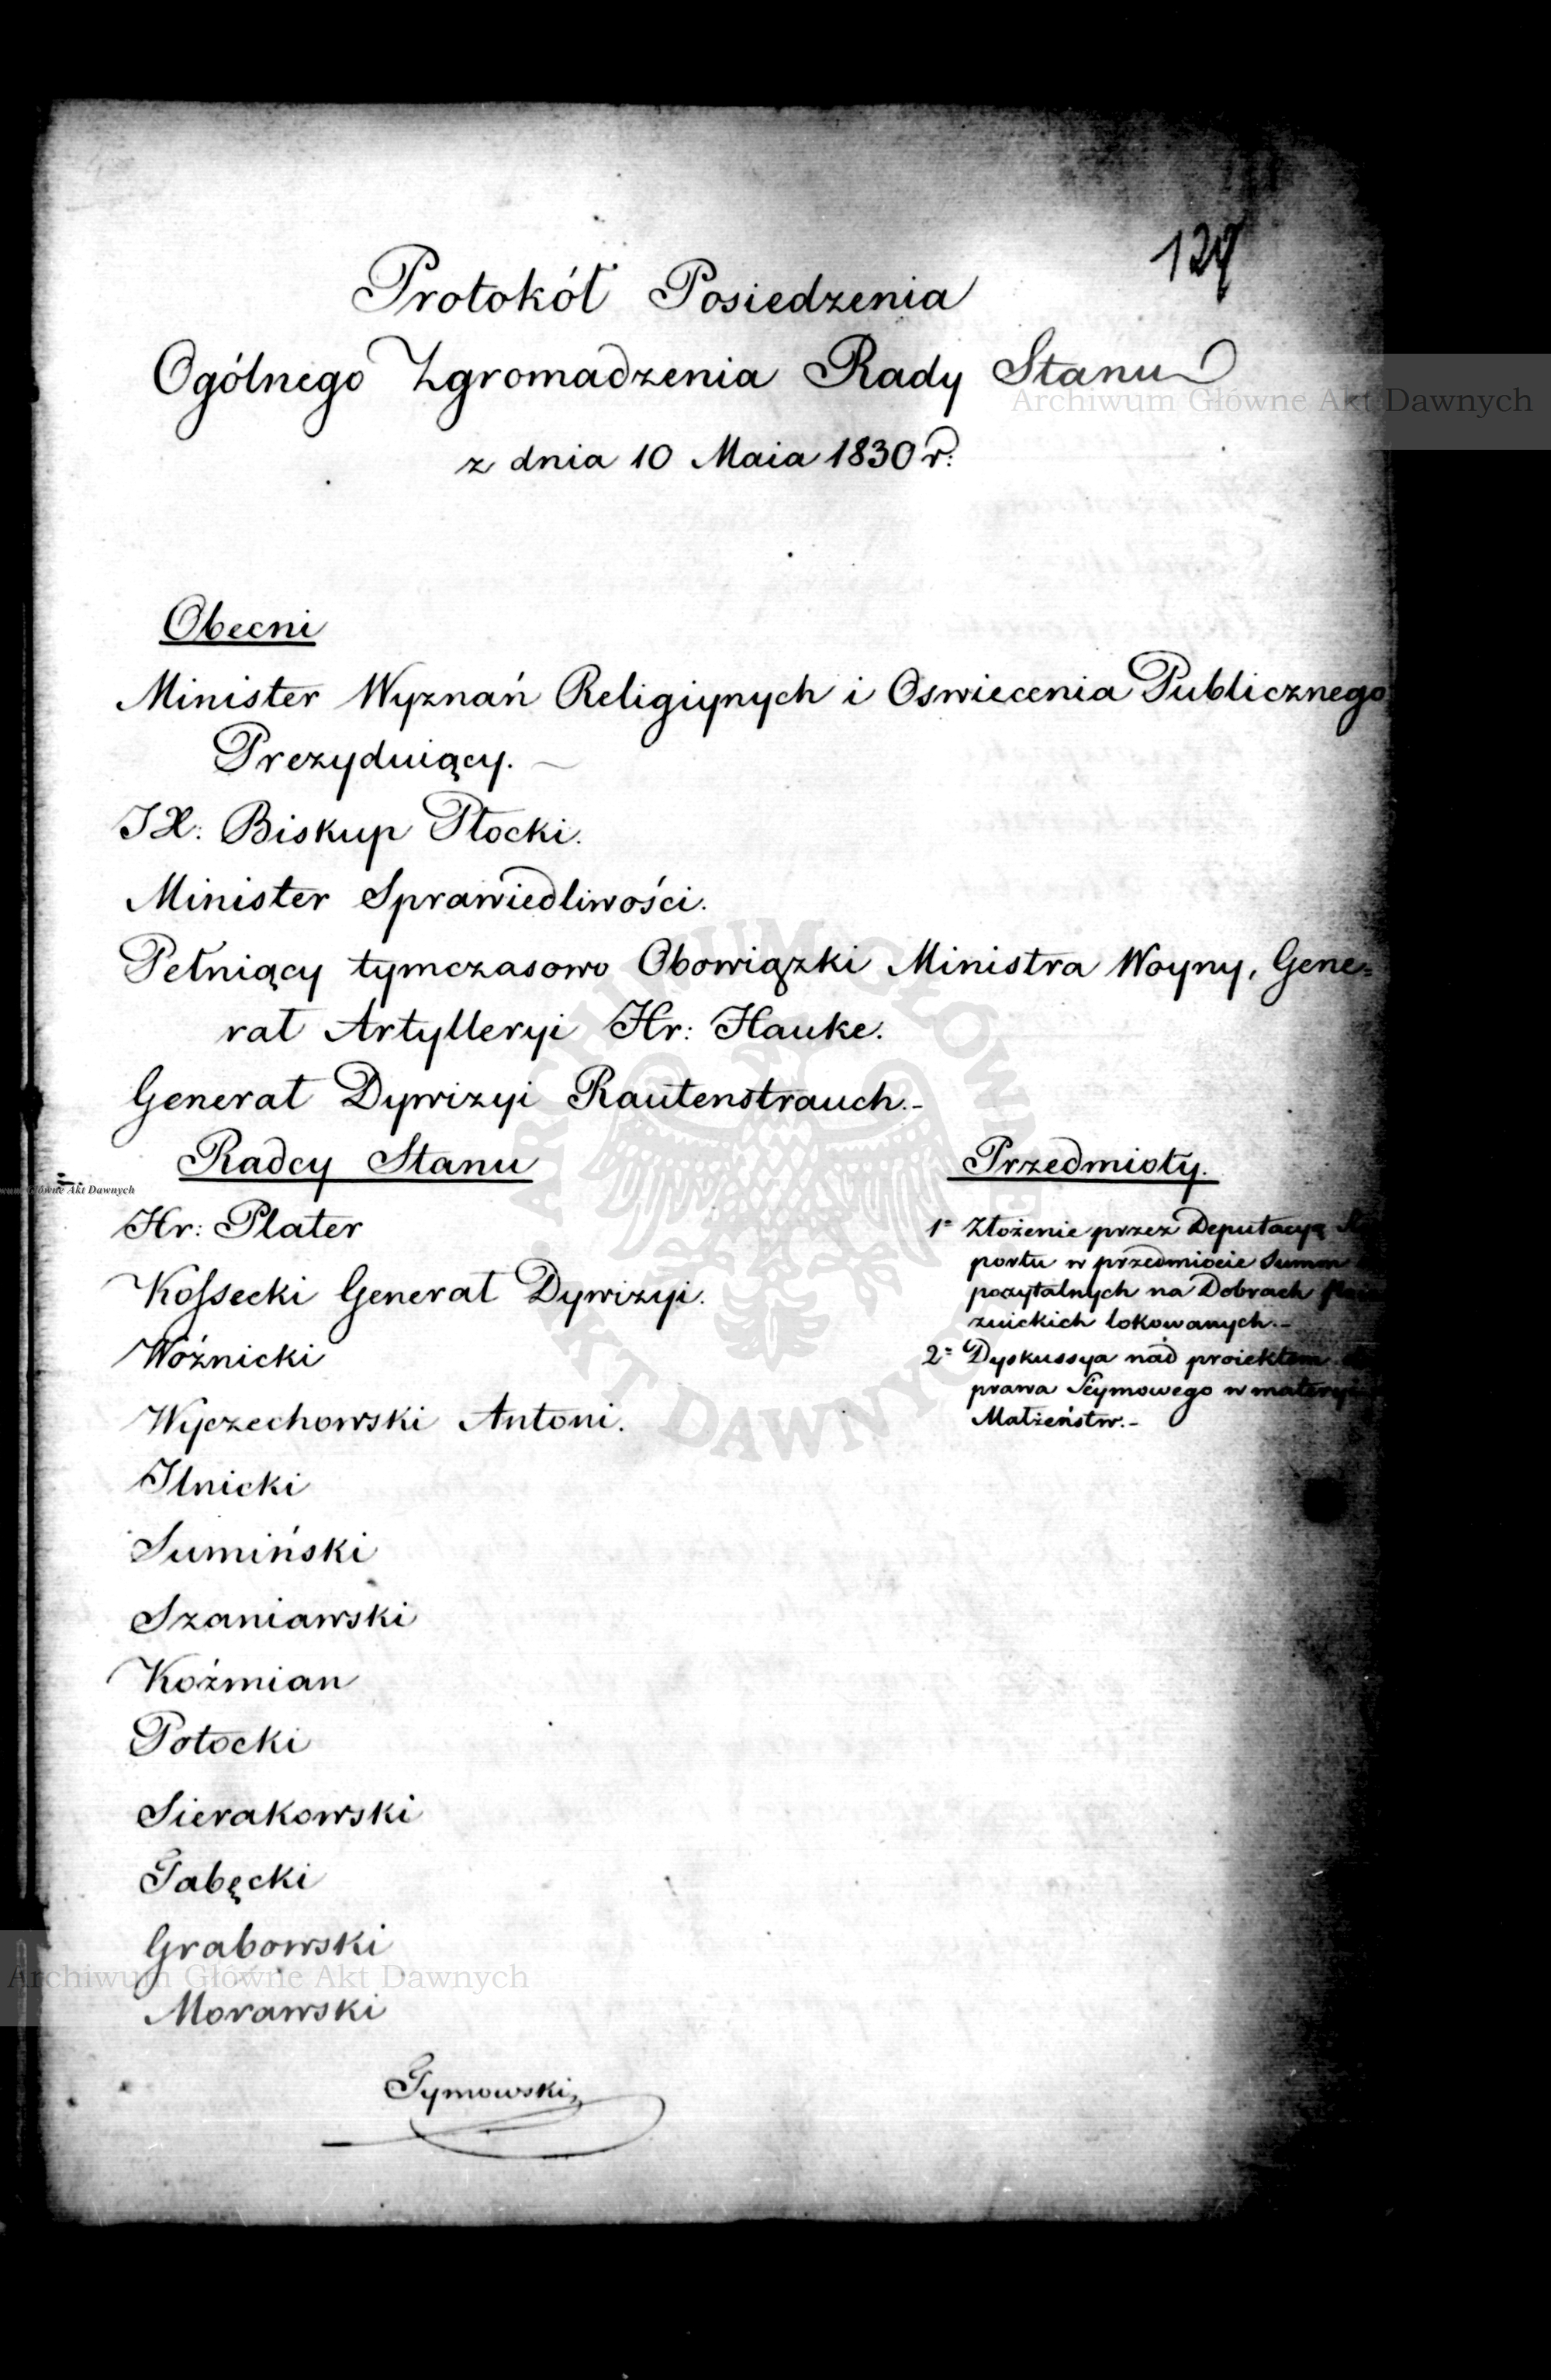 Protokół Posiedzenia
Ogólnego Zgromadzenia Rady Stanu
z dnia 10 Maia 1830 r:
Obecni
Minister Wyznań Religiynych i Oswiecenia Publicznego
Prezyduiący.
JX: Biskup Płocki.
Minister Sprawiedliwości.
Pełniący tymczasowo Obowiązki Ministra Woyny, Gene=
rał Artylleryi Hr: Hauke.
Generał Dywizyi Rautenstrauch.-
Radcy Stanu
Hr: Plater
Kossecki Generał Dywizyi.
Woźnicki
Wyczechowski Antoni.
Ilnicki
Sumiński
Szaniawski
Koźmian
Potocki
Sierakowski
Tabęcki
Grabowski
Morawski
Tymowski
Przedmioty.
1= Złożenie przez Deputacyą
portu w przedmiocie Summ
pozytalnych na Dobrach
zuickich lokowanych.-
2= Dyskussya nad proiektem
prawa Seymowego w materyi
Małżeństw.-
Archiwum Główne Akt Dawnych
ARCHIWUM GŁÓWNE AKT DAWNYCH
Główne Akt Dawnych
Archiwum Główne Akt Dawnych